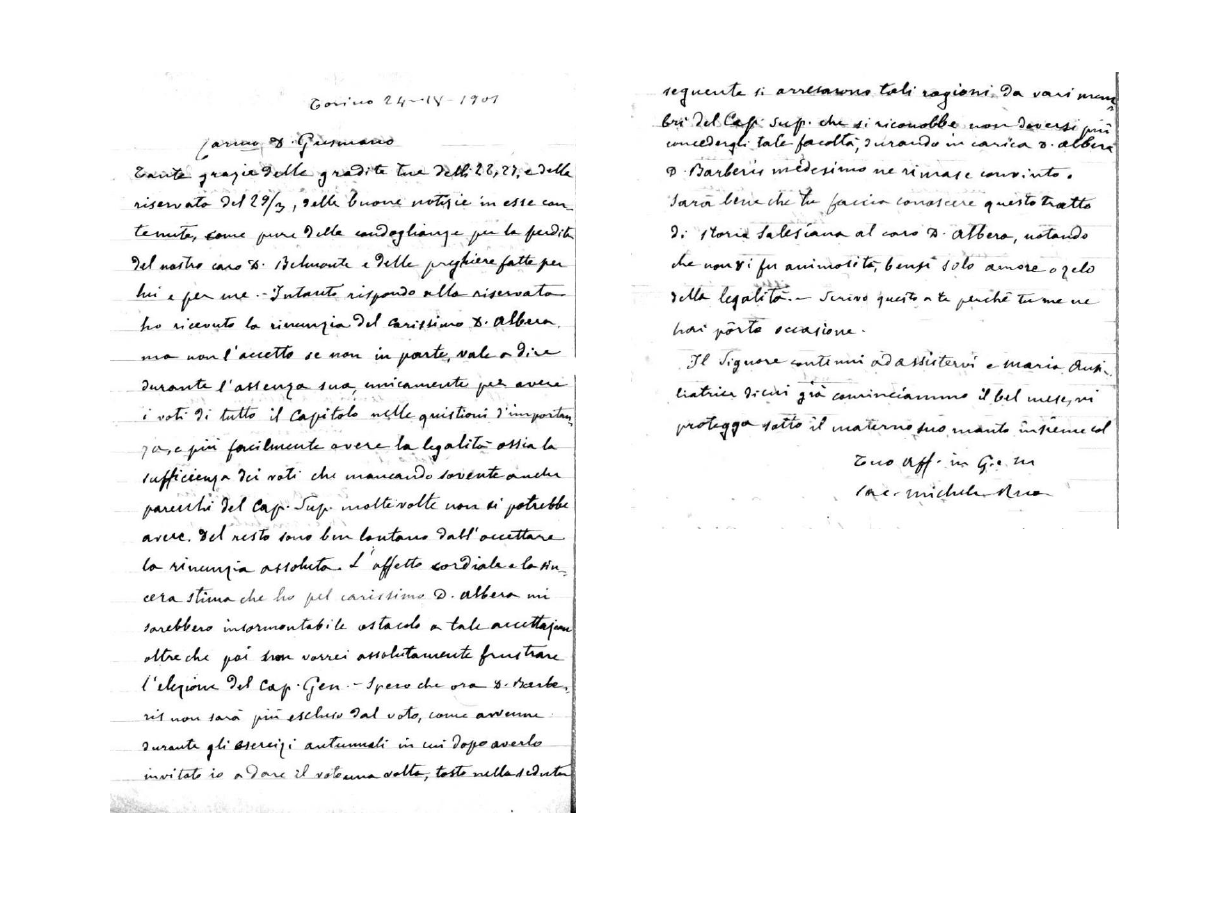 Torino 24-IV-1901
Carmo D. Gusmano
Tante grazie delle gradite tue delli 23, 27, e della
riservata del 29/3, delle buone notizie in esse con
tenute, come pure delle condoglianze per la perdita
del nostro caro D. Belmonte e delle preghiere fatte per
lui e per me.- Intanto rispondo alla riservata
ho ricevuto la rinunzia del carissimo D. Albera
ma non l'accetto se non in parte, vale a dire
durante l'assenza sua, unicamente per avere
i voti di tutto il Capitolo nelle quistioni d'importan
za, e più facilmente avere la legalità ossia la
sufficienza dei voti che mancando sovente anche
parecchi del Cap. Sup. molte volte non si potrebbe
avere. Del resto sono ben lontano dall'accettare
la rinunzia assoluta. L'affetto cordiale e la sin-
cera stima che ho pel carissimo D. Albera mi
sarebbero insormontabile ostacolo a tale accettazione
oltre che poi non vorrei assolutamente frustrare
l'elezione del Cap. Gen.- Spero che ora D. Barbe-
ris non sarà più escluso dal voto, come avvenne
durante gli esercizi autunnali in cui dopo averlo
invitato io a dare il voto una volta, tosto nella seduta
seguente si arrecarono tali ragioni da vari mem
bri del Cap. Sup. che si riconobbe non doversi più
concedergli tale facoltà, durando in carica D. Albera
D. Barberis medesimo ne rimase convinto.
Sarà bene che tu faccia conoscere questo tratto
di storia Salesiana al caro D. Albera, notando
che non vi fu animosità, bensì solo amore o zelo
della legalità.- Scrivo questo a te perchè tu me ne
hai pòrta occasione.
Il Signore continui ad assistervi e Maria Ausi-
liatrice di cui già cominciammo il bel mese, vi
protegga sotto il materno suo manto insieme col
Tuo Aff. in G. e M
Sac. Michele Rua